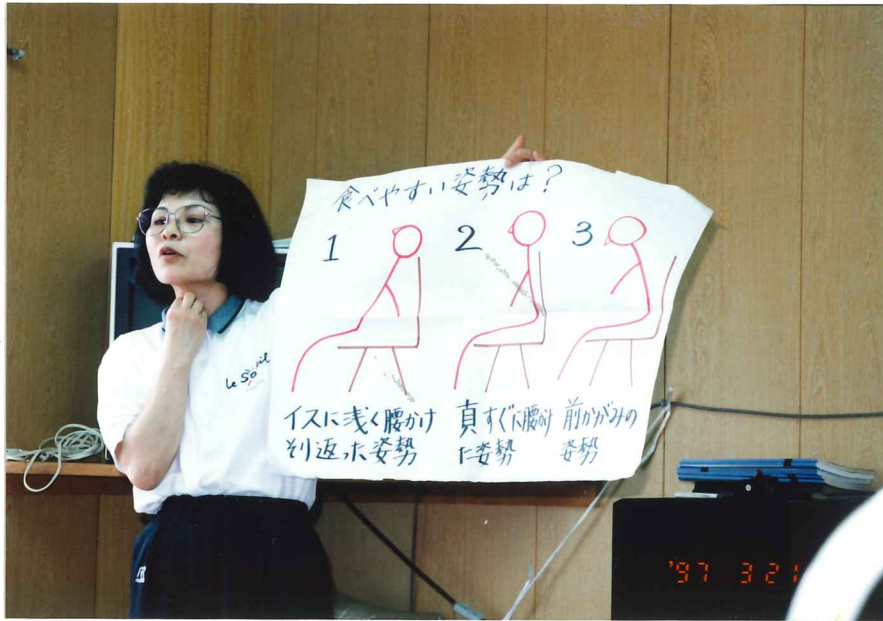 食べやすい姿勢は?
1
2
3
イスに浅く腰かけ
そり返った姿勢
真すぐに腰かけ
た姿勢
前かがみの
姿勢
Le Soleil
'97 3 21